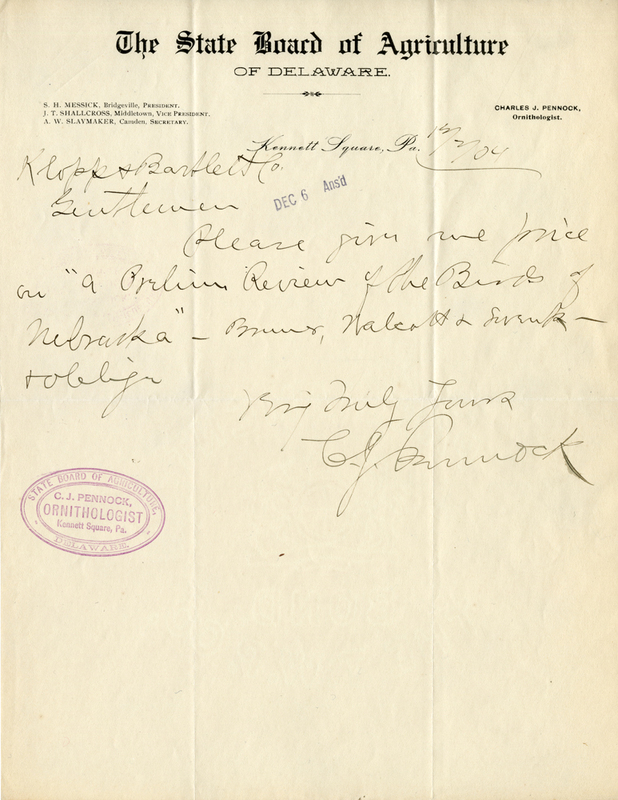 The State Board of Agriculture
OF DELAWARE.
S. H. MESSICK, Bridgeville, PRESIDENT.
J. T. SHALLCROSS, Middletown, VICE PRESIDENT.
A. W. SLAYMAKER, Camden, SECRETARY.
CHARLES J. PENNOCK,
Ornithologist.
Kennett Square, Pa. 12/2/04
Klopp & Bartlett Co.
DEC 6 Ans'd
Gentlemen
Please give me price
on "A Prelim. Review of the Birds of
Nebraska" - Bruner, Wolcott & Swenk -
& oblige
Very Truly Yours
C. J. Pennock
STATE BOARD OF AGRICULTURE,
C. J. PENNOCK,
ORNITHOLOGIST
Kennett Square, Pa.
DELAWARE.